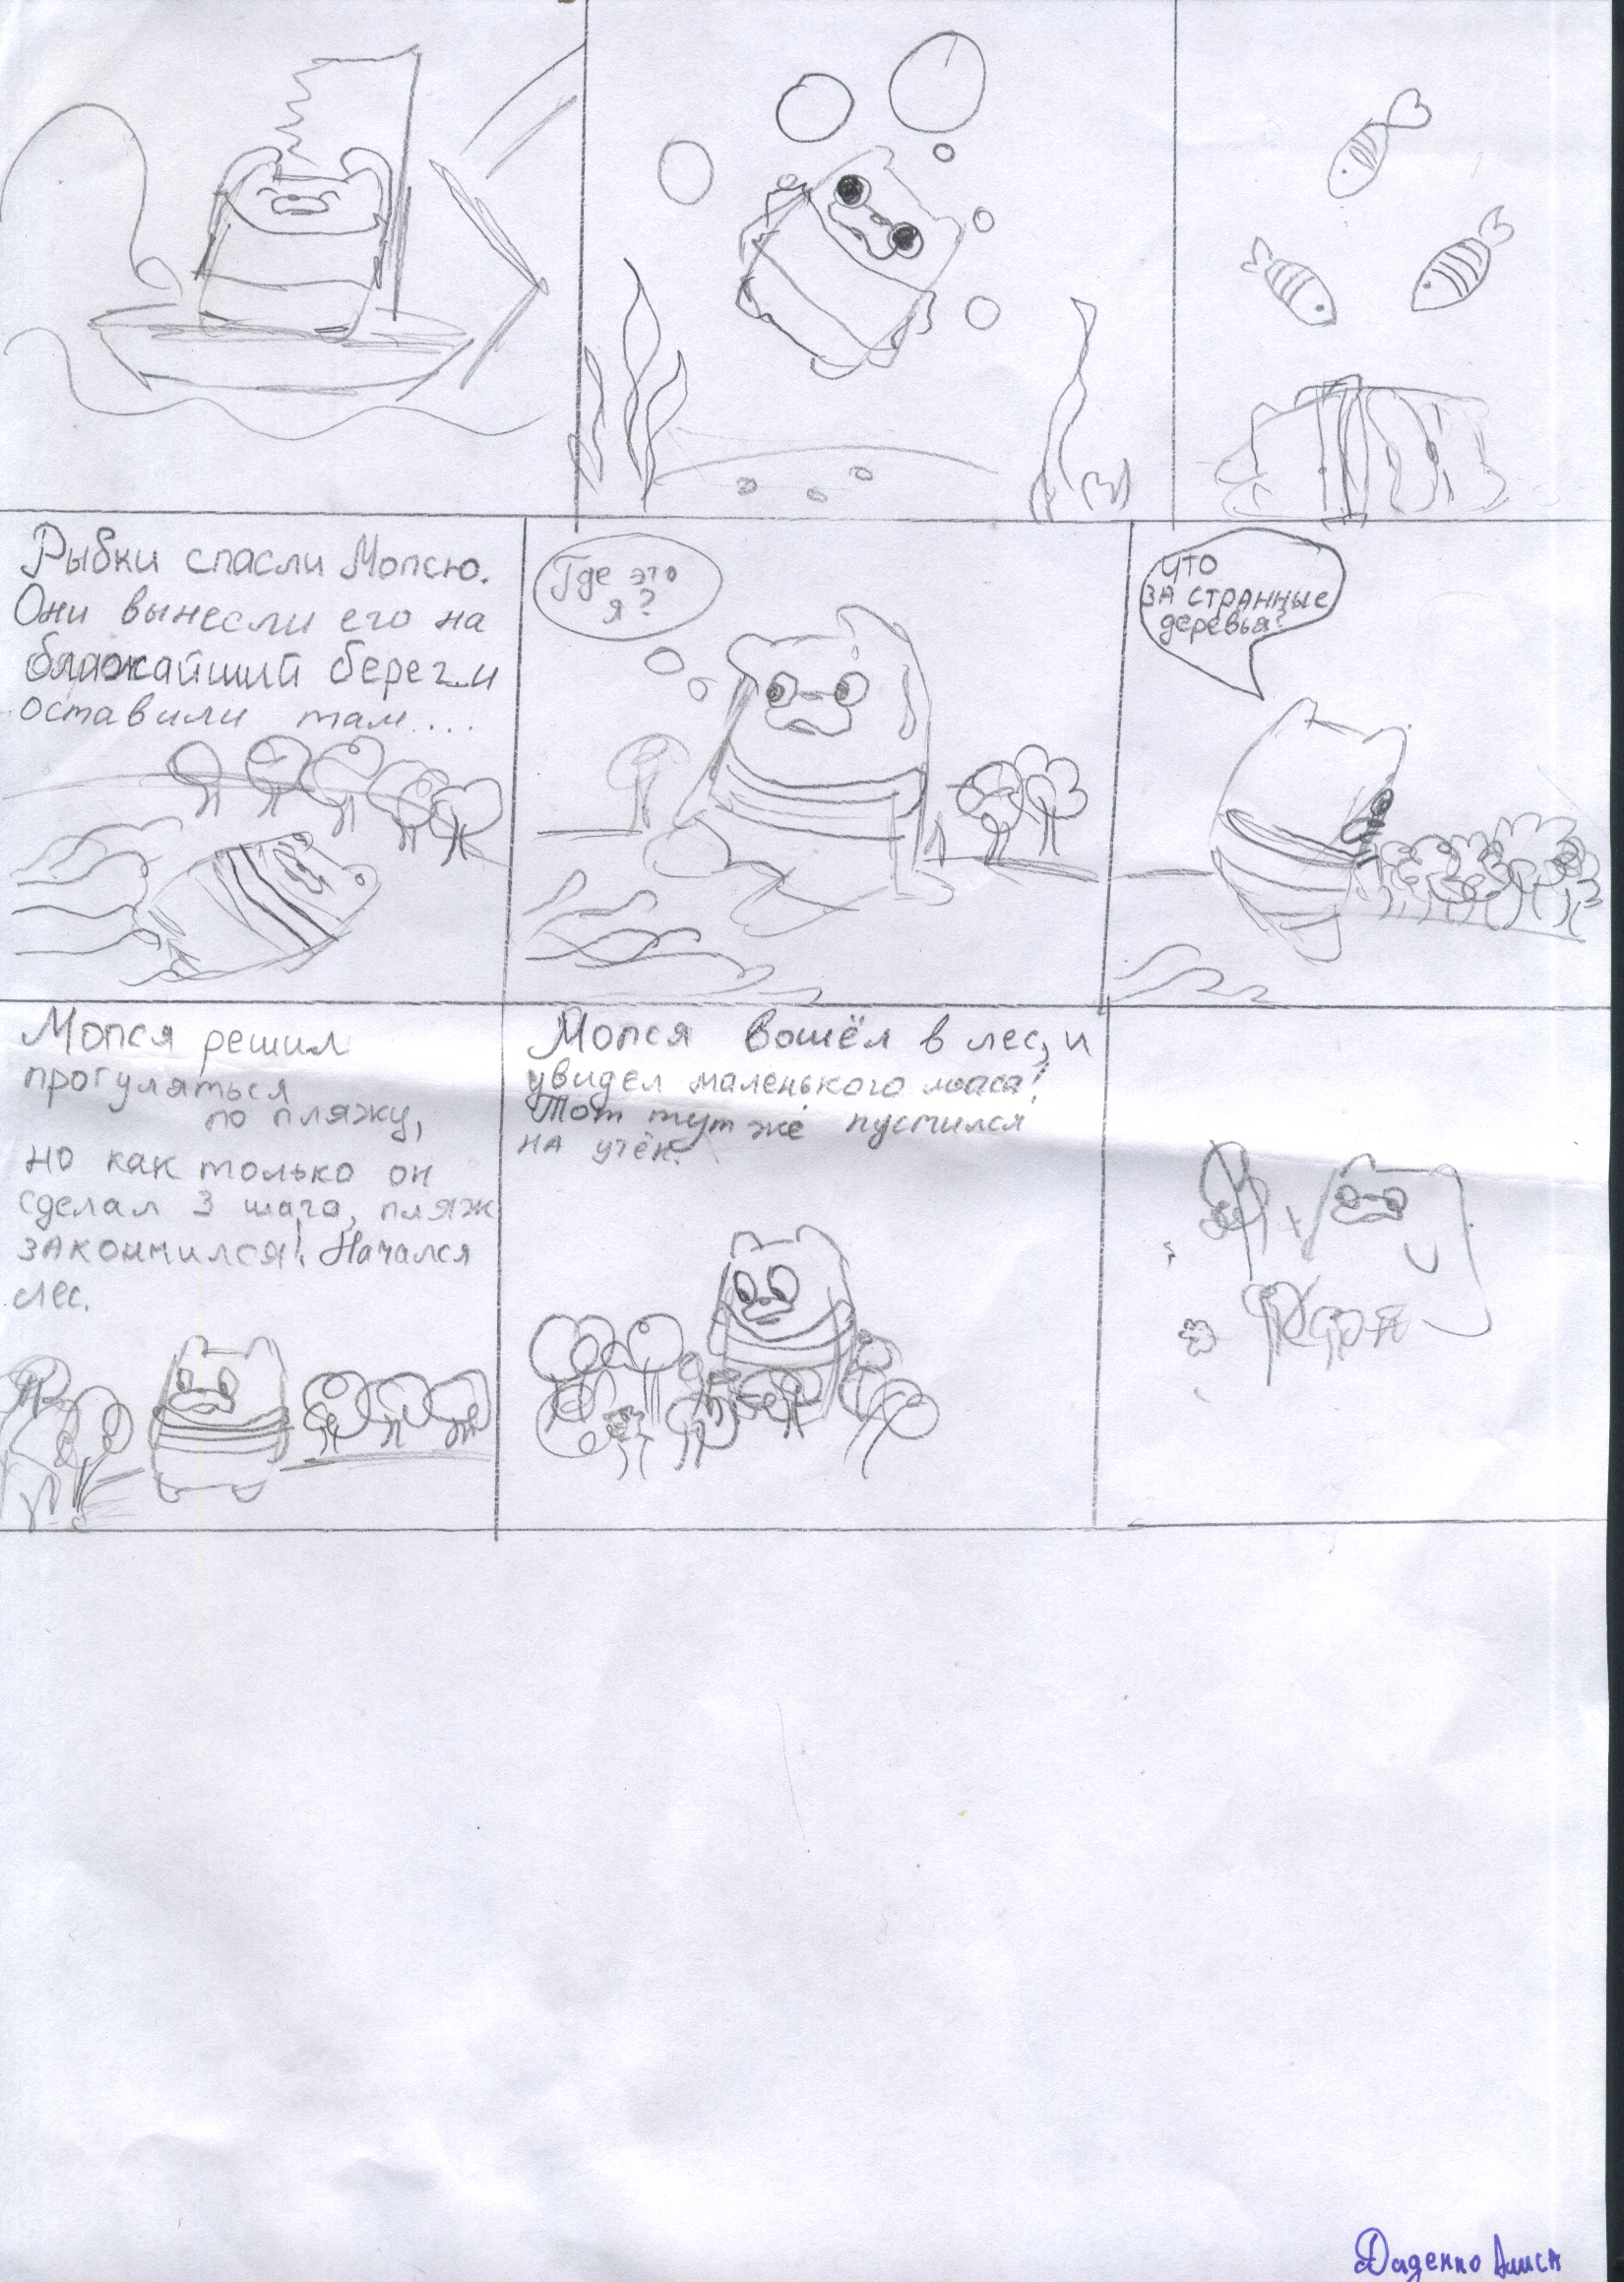 Рыбки спасли Мопсю.
Они вынесли его на
ближайший берег и
оставили там....
Где это
я?
ЧТО
ЗА СТРАННЫЕ
деревья?
Мопся решил
прогуляться
по пляжу,
но как только он
сделал 3 шага, пляж
закончился! Начался
лес.
Мопся вошёл в лес, и
увидел маленького
Тот тут же пустился
на утёк.
Алиса